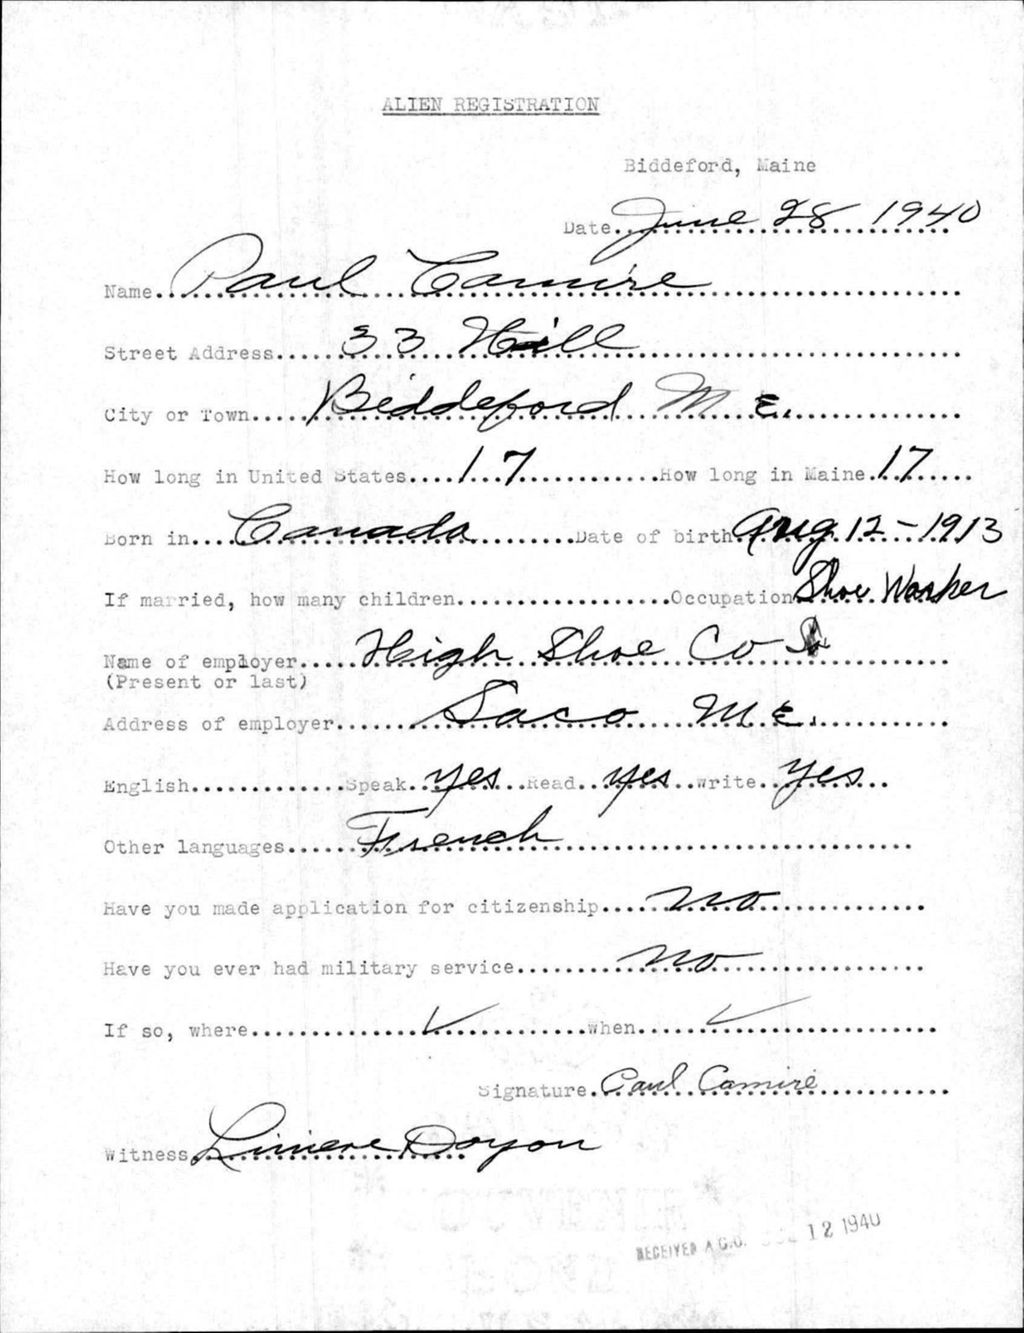 ALIEN REGISTRATION
Biddeford, Maine
Date June 28 1940
Name Paul Camire
Street Address 33 Hill
City or Town Biddeford ME.
How long in United States 17 How long in Maine 17
Born in Canada Date of birth Aug 12-1913
If married, how many children Occupation Shoe Worker
Name of employer High Shoe Co
(Present or last)
Address of employer Saco ME.
English Speak yes Read yes Write yes
Other languages French
Have you made application for citizenship no
Have you ever had military service no
If so, where ✓ when ✓
Signature Paul Camiré
Witness Doyon
RECEIVED A.G.O. 12 1940